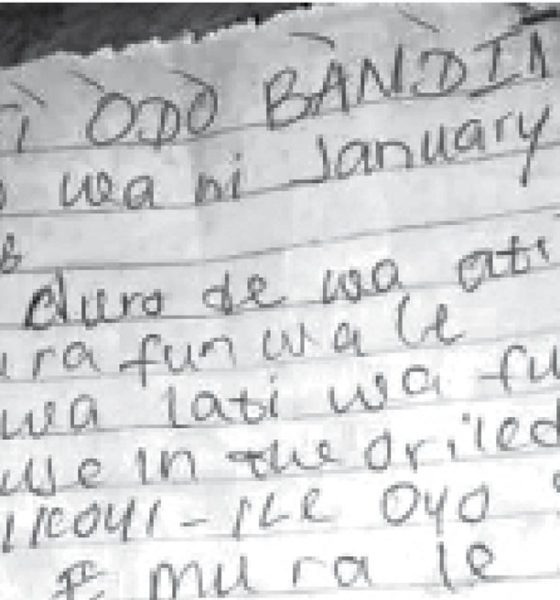 ÒDÒ BÀNDÍ
wa ni January
duro de wa ati
ra fun wa le
wa lati wa fu
use in the driled
IKOYI-ILE OYO
E mu ra le